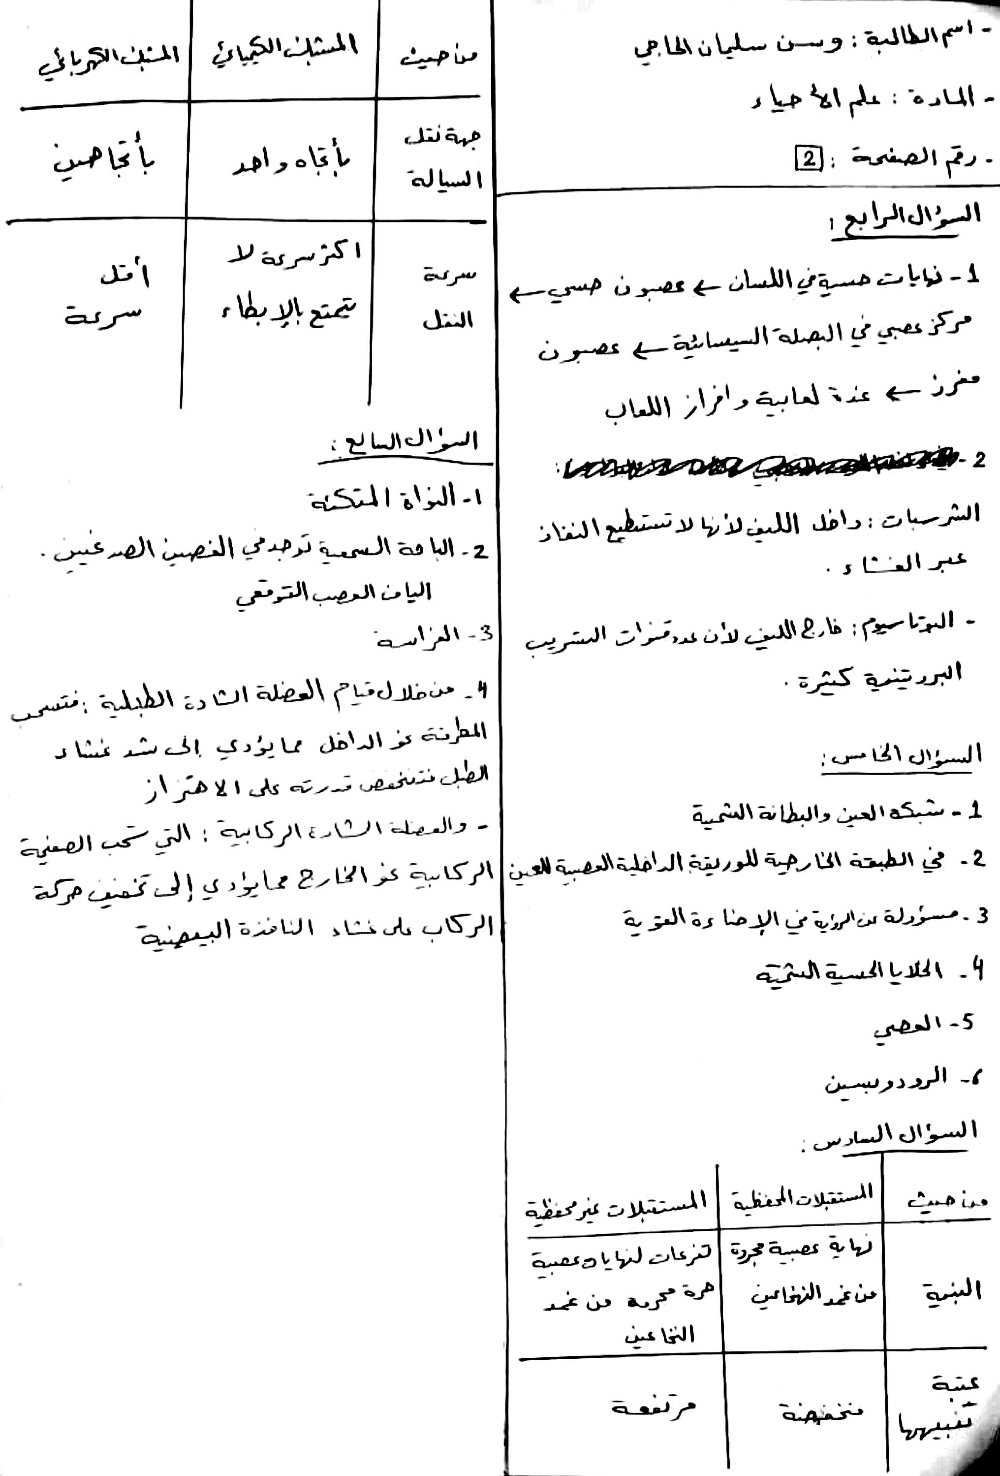 - اسم الطالبة : وسن سليمان الحاجي
- المادة : علم الأحياء
- رقم الصفحة : 2
السؤال الرابع :
1- نهايات حسية في اللسان ← عصبون حسي ←
مركز عصبي في البصلة السيسائية ← عصبون
مفرز ← غدة لعابية و افراز اللعاب
2-
الشرسبات : داخل الليف لأنها لا تستطيع النفاذ
عبر الغشاء .
- البوتاسيوم : خارج الليف لأن عدد قنوات التسريب
البروتينية كثيرة .
السؤال الخامس :
1- شبكه العين والبطانة الشمية
2- في الطبقة الخارجية للوريقة الداخلية العصبية للعين
3- مسؤولة عن الرؤية في الإضاءة القوية
4- الخلايا الحسية الشمية
5- العصي
6- الرودوبسين
السؤال السادس :
من حيث | المستقبلات المحفظية | المستقبلات غير محفظية
البنية | نهاية عصبية مجردة | تفرعات لنهايات عصبية
من غمد النخاعين | حرة مجرده من غمد
النخاعين
عتبة تنبيهها | منخفضة | مرتفعة
من حيث | المشبك الكيميائي | المشبك الكهربائي
جهة نقل السيالة | بأتجاه واحد | بأتجاهين
سرعة النقل | اكثر سرعة لا | أقل
يتمتع بالإبطاء | سرعة
السؤال السابع :
1- النواة المتكئة
2- الباحة السمعية توجد في الفصين الصدغيين .
الياف العصب القوقعي
3-
4- من خلال قيام العضلة الشادة الطبلية : فتسحب
المطرقة نحو الداخل مما يؤدي إلى شد غشاء
الطبل فتنخفض قدرته على الاهتزاز
- والعضلة الشادة الركابية : التي تسحب الصفيحة
الركابية نحو الخارج مما يؤدي إلى تخفيف حركة
الركاب على غشاء النافذة البيضية